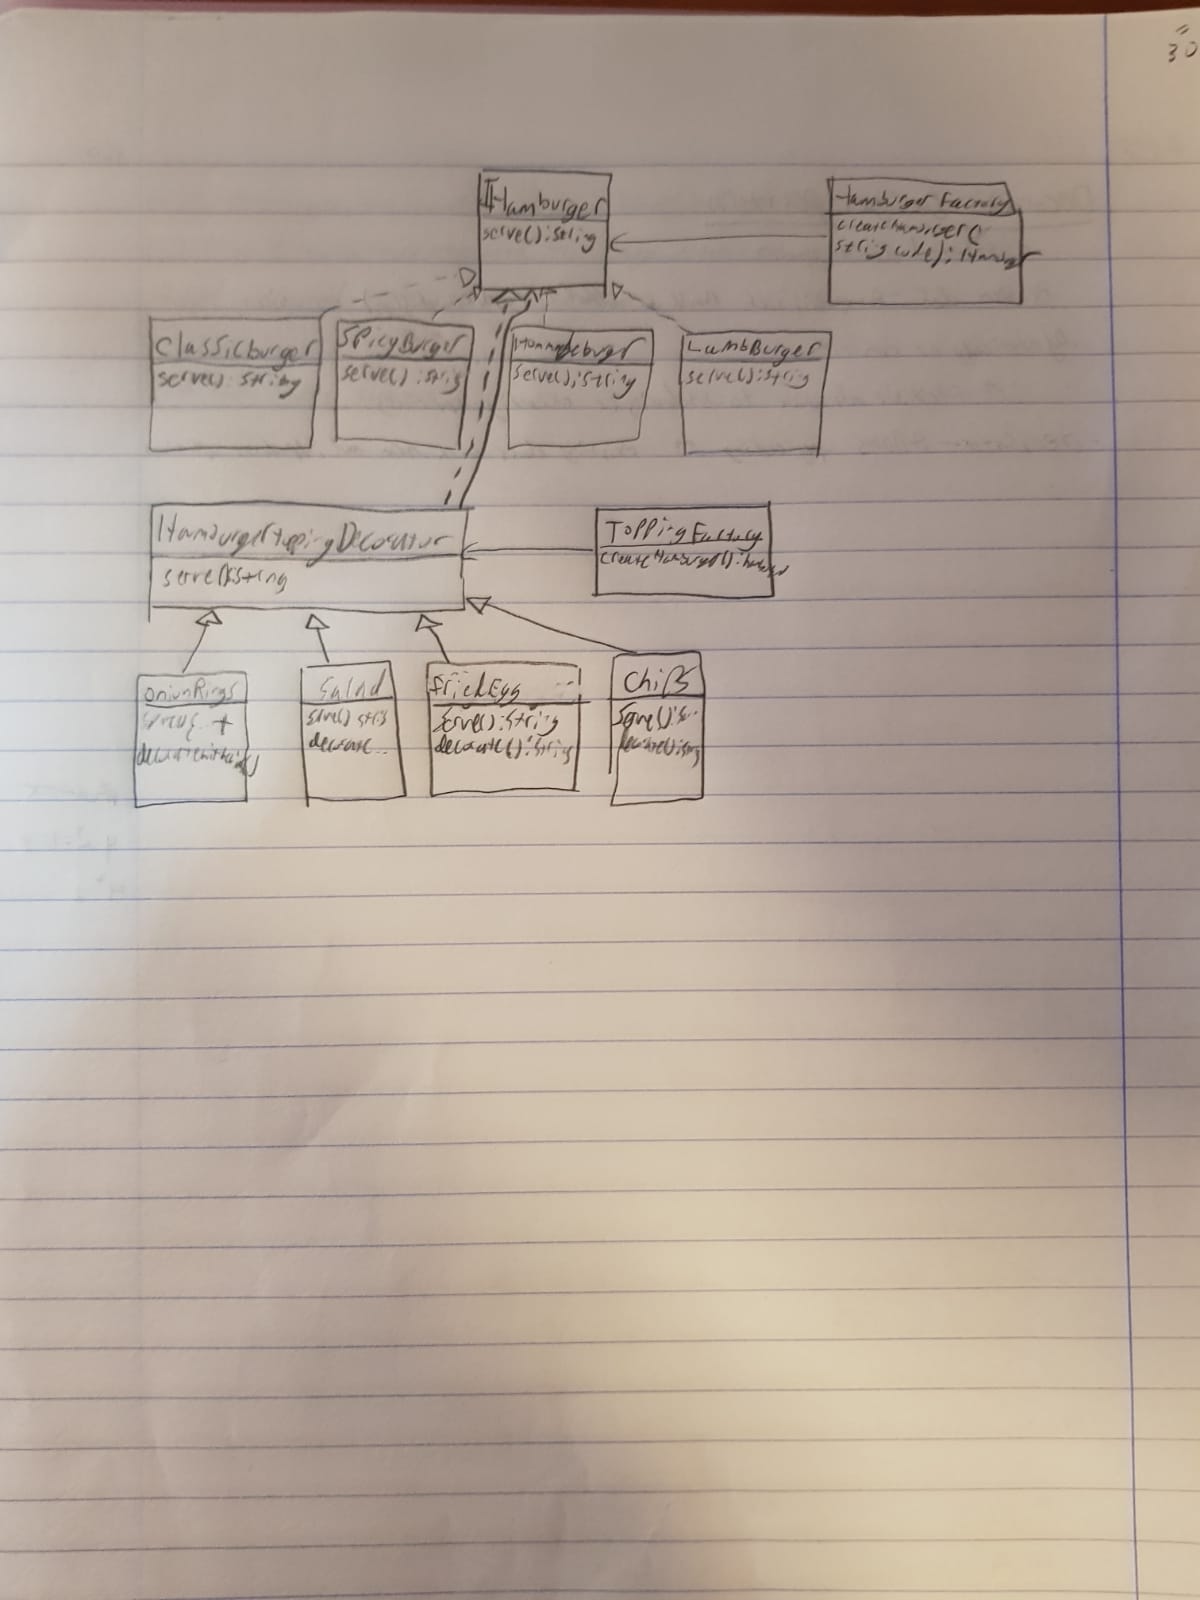 30
IHamburger
serve():String
Hamburger Factory
createHamburger(
String code):
Classicburger
serve():String
SpicyBurger
serve():String
serve():String
LambBurger
serve():String
HamburgerToppingDecorator
serve():String
Topping Factory
createHamburger():
OnionRings
Salad
serve() String
decorate...
FriedEgg
serve():String
decorate():String
Chips
serve():S..
decorate():String